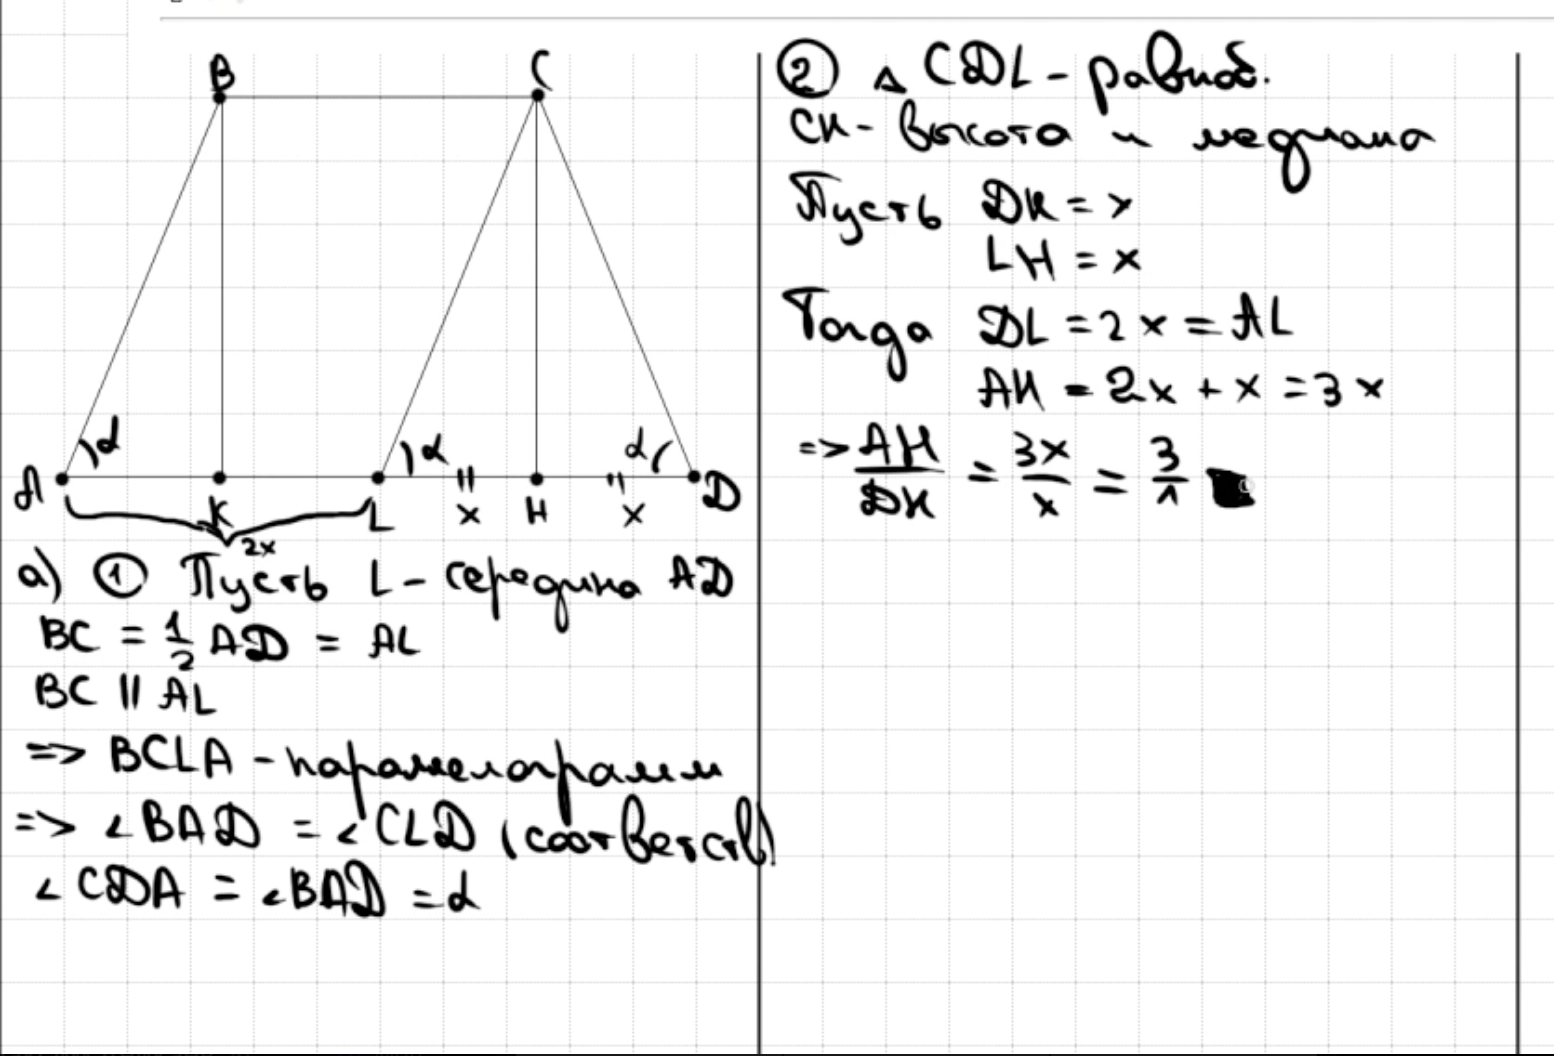 B C
α α α
A K L H D
x x
2x
а) ① Пусть L - середина AD
BC = 1/2 AD = AL
BC || AL
=> BCLA - параллелограмм
=> ∠BAD = ∠CLD (соответств)
∠CDA = ∠BAD = α
② △ CDL - равноб.
CH - высота и медиана
Пусть DH = x
LH = x
Тогда DL = 2x = AL
AH = 2x + x = 3x
=> AH/DH = 3x/x = 3/1